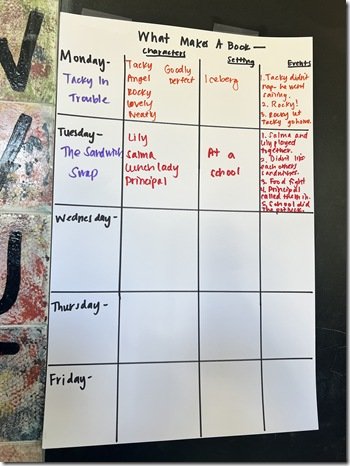 What Makes A Book—
Characters
Setting
Events
Monday-
Tacky In
Trouble
Tacky Goodly
Angel Perfect
Rocky
Lovely
Neatly
Iceberg
1. Tacky didn't
nap- he went
sailing.
2. Rocky!
3. Rocky let
Tacky go home.
Tuesday-
The Sandwich
Swap
Lily
Salma
Lunch lady
Principal
At a
school
1. Salma and
Lily played
together.
2. Didn't like
each others
sandwiches.
3. Food fight
4. Principal
called them in.
5. School did
the potluck.
Wednesday-
Thursday-
Friday-